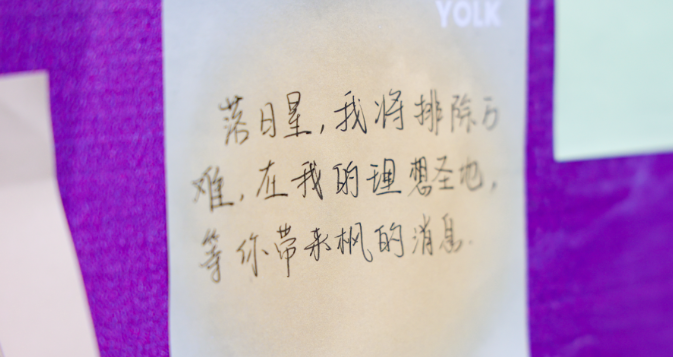 YOLK
落日星,我将排除万
难,在我的理想圣地,
等你带来枫的消息.